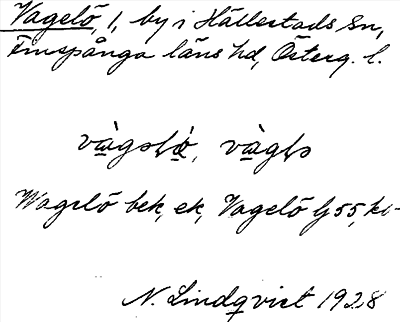 Vagelö, 1, by i Hällestads sn,
Finspånga läns hd, Österg. l.
Wagelö bek, ek, Vagelö G 55, ki-
N. Lindqvist 1928